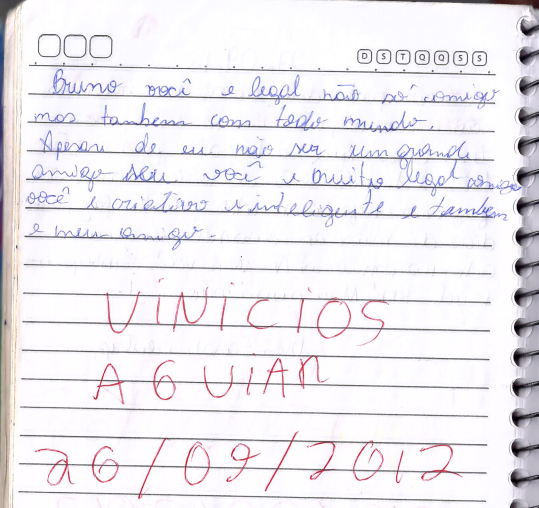 D S T Q Q S S
Bruno você e legal não só comigo
mas tambem com todo mundo.
Apesar de eu não ser um grande
amigo seu você e muito legal comigo
você e criativo e inteligente e tambem
e meu amigo.
VINICIOS
AGUIAR
26/09/2012